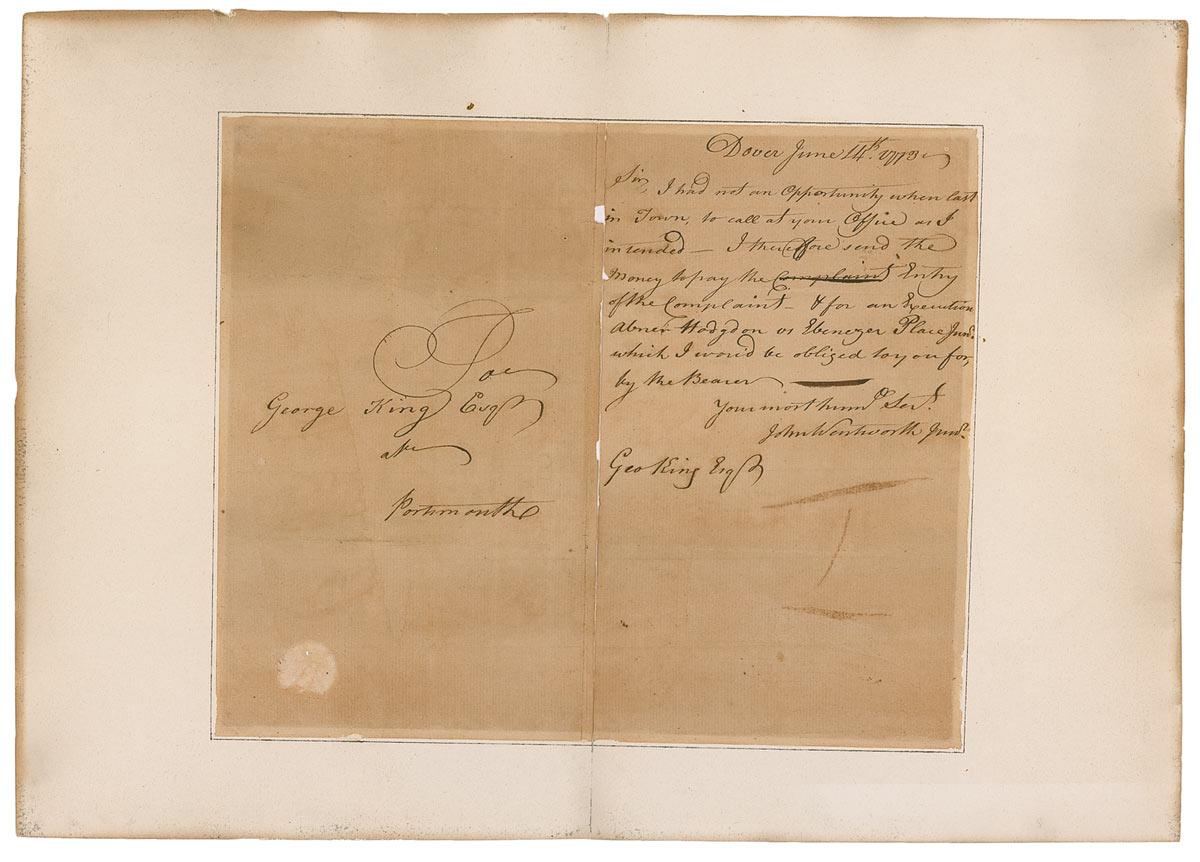 To
George King Esqr
att
Portsmouth
Dover June 14th. 1773
Sir, I had not an Opportunity when last
in Town, to call at your Office as I
intended – I therefore send the
Money to pay the Complaint Entry
of the Complaint – & for an Execution
Abner Hodgdon vs Ebenezer Place Junr.
which I wou'd be obliged to you for,
by the Bearer
Your most humle Servt.
John Wentworth Junr.
Geo King Esqr